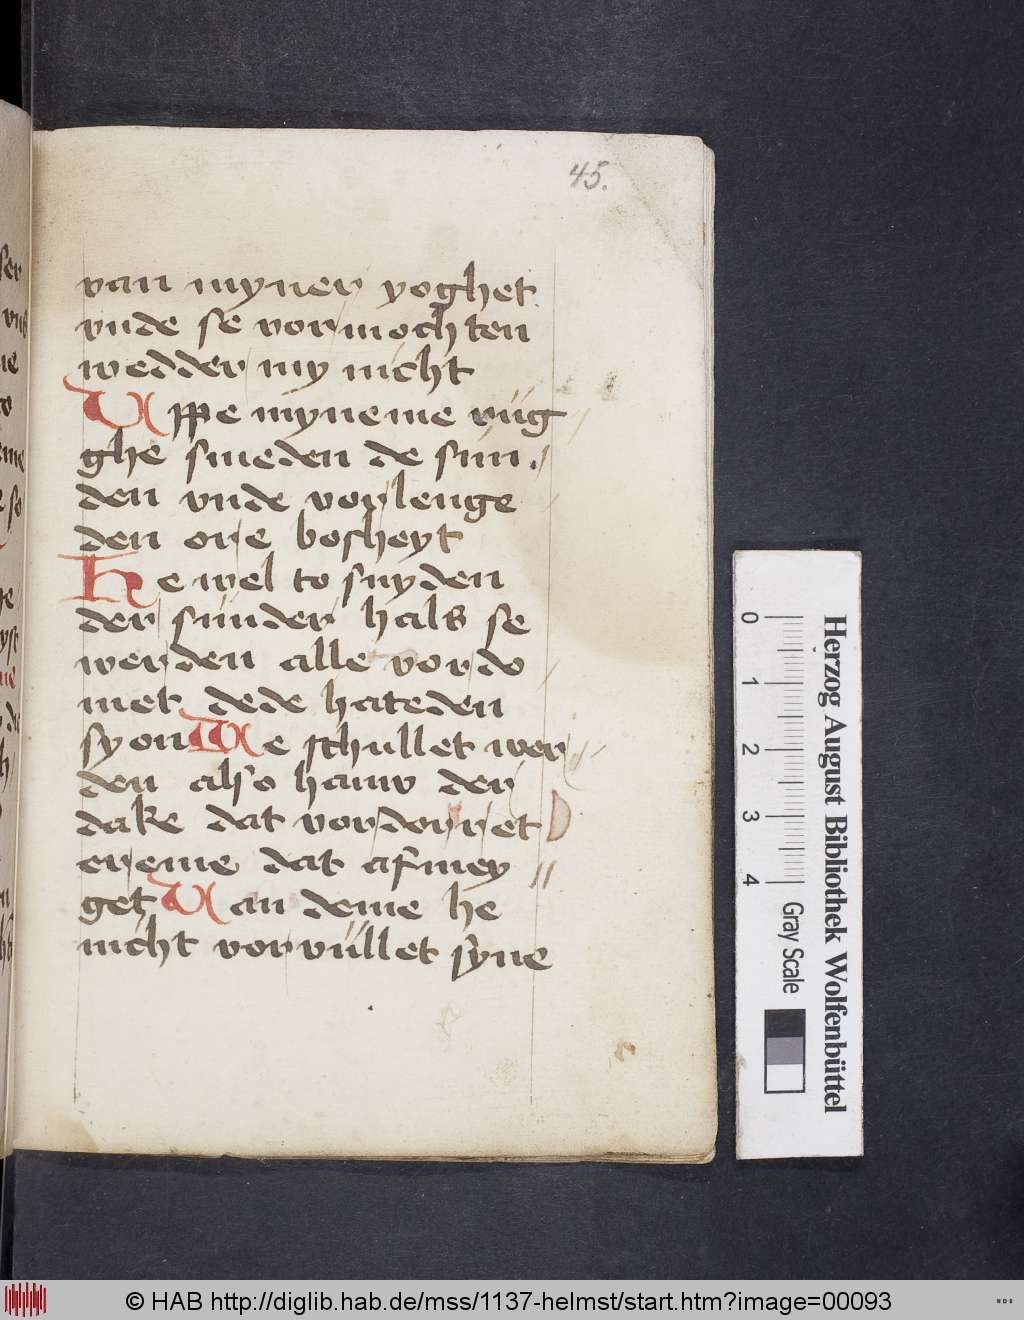 45.
van myner yoghet
vnde se vormochten
wedder my nicht
Uppe myneme rúg
ghe smeden de sun
den vnde vorlenge
den ore bosheyt
He wel to snyden
der súnder hals se
werden alle vordo
met dede hateden
syon Ue schullet wer
den also hauw der
dake dat vordorret
ereme dat afmey
get Uan deme he
nicht vorvúllet syne
Herzog August Bibliothek Wolfenbüttel
0 1 2 3 4 Gray Scale
© HAB http://diglib.hab.de/mss/1137-helmst/start.htm?image=00093